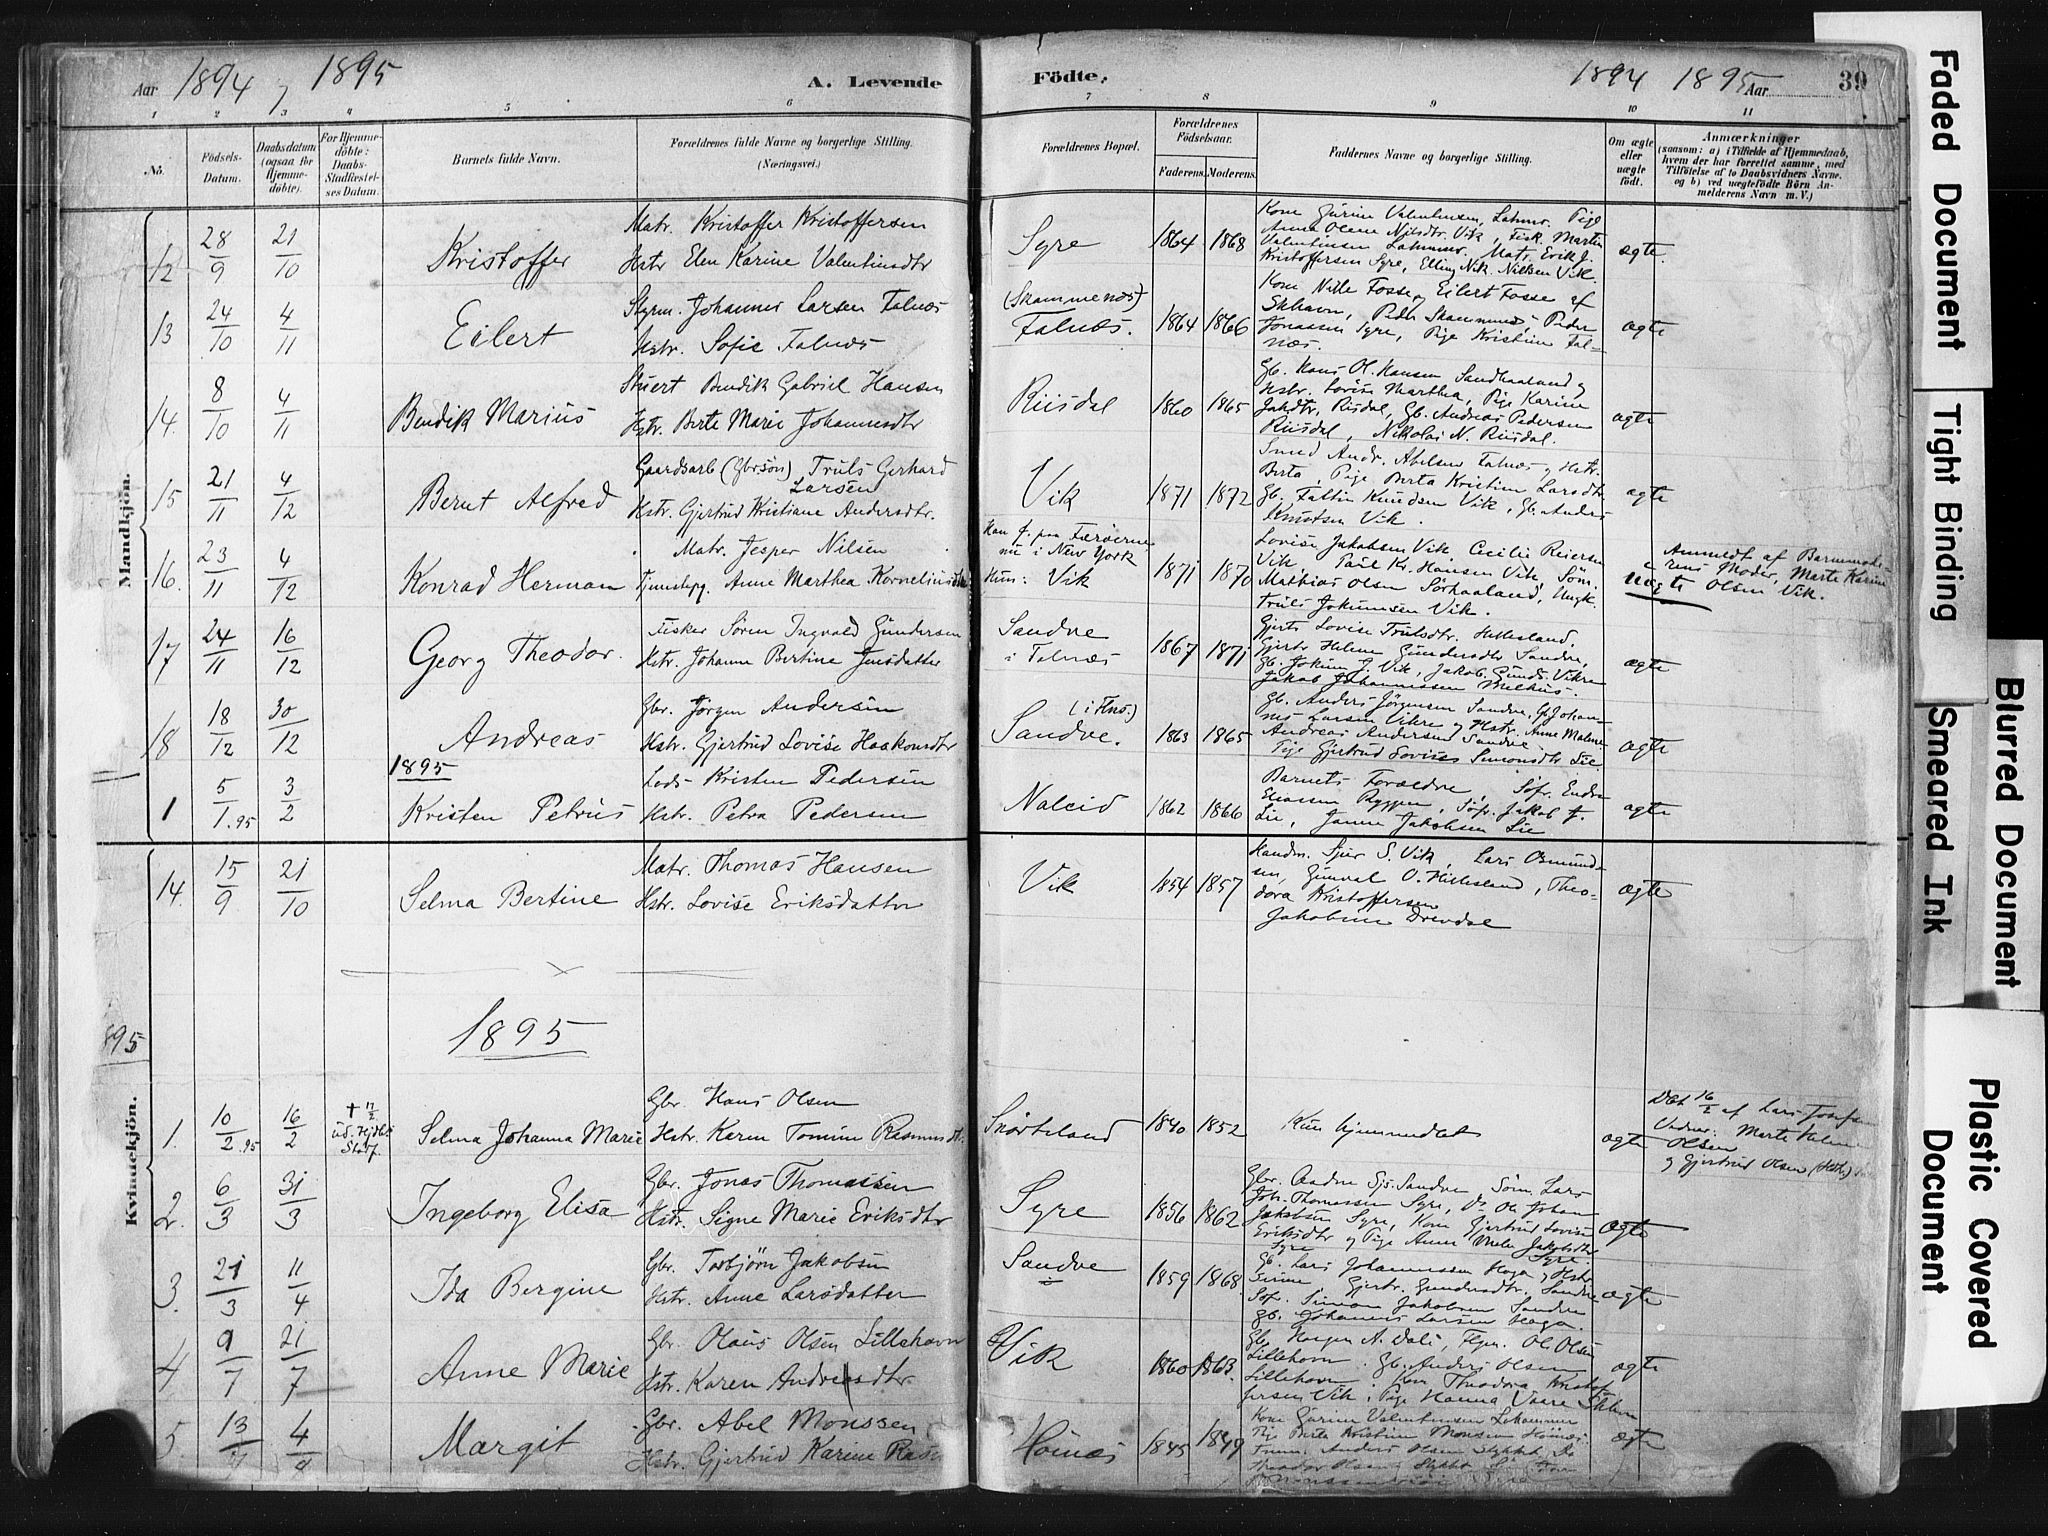 Aar 1894, 1895
A. Levende
Födte,
1894 1895 Aar
39
1 2 3 4 5 6 7 8 9 10 11
No.
Födsels-Datum.
Daabsdatum (ogsaa for Hjemme-döbte).
For Hjemme-döbte: Daabs-Stadfæstel-ses Datum.
Barnets fulde Navn.
Forældrenes fulde Navne og borgerlige Stilling. (Næringsvei.)
Forældrenes Bopæl.
Forældrenes Födselsaar.
Faderens. Moderens.
Faddernes Navne og borgerlige Stilling.
Om ægte eller uægte födt.
Anmærkninger
(saasom: a) i Tilfælde af Hjemmedaab,
hvem der har forrettet samme, med
Tilföielse af to Daabsvidners Navne.
og b) ved uægtefödte Börn An-
melderens Navn m. V.)
Mandkjön.
12 28/9 21/10 Kristoffer
Matr. Kristoffer Kristoffersen
Hstr Elen Karine Valentinsdtr
Syre 1864 1868
Kone Gurine Valentinsen, Pige
Anna Olene Nilsdtr. Vik, Fisk. Martin
Valentinsen Matr. Erik J.
Kristoffersen Syre, Elling Nik. Nielsen Vik.
ægte.
13 24/10 4/11 Eilert
Styrm. Johannes Larsen Falnæs
Hstr. Sofie Falnæs
(Skammenæs)
Falnæs. 1864 1866
Kone Nille Fosse, Eilert Fosse af
Skhavn, Peder Skammenæs, Peder
Jonassen Syre, Pige Kristine Fal-
næs.
ægte
14. 8/10 4/11 Bendik Marius
Stuert Bendik Gabriel Hansen
Hstr. Berte Marie Johannesdtr
Risdal 1860 1865
Gb. Hans Ol. Hansen Sandhaaland og
Hstr. Lovise Marthea, Pige Karine
Jakdtr, Risdal, Gb. Andreas Pedersen
Risdal, Nikolai N. Risdal.
ægte
15 21/11 4/12 Bernt Alfred
Gaardsarb (Gbrsön) Truls Gerhard
Larsen
Hstr. Gjertrud Kristiane Andersdtr.
Vik 1871 1872
Smed Andr. Abelsen Falnæs og Hstr.
Berta, Pige Berta Kristine Larsdtr,
Gb. Knudsen Vik, Gb. Anders
Knutsen Vik.
ægte
16. 23/11 4/12 Konrad Herman
Matr. Jesper Nilsen
Tjenestepg. Anne Marthea Korneliusdtr
Han f. paa Færöerne
nu i New York
Hun: Vik 1871 1870
Lovise Jakobsen Vik, Cecilie Reiersen
Vik, Paul Kr. Hansen Vik, Söm.
Mathias Olsen Sörhaaland, Ungk.
Truls Jokumsen Vik.
uægte
Anmeldt af Barnemode-
rens Moder, Marte Karine
Olsen Vik.
17 24/11 16/12 Georg Theodor.
Fisker Sören Ingvald Gundersen
Hstr. Johanne Bertine Jensdatter
Sandve
i Falnæs 1867 1871
Gjertr Lovise Trulsdtr. Hillesland,
Gjertr Helene Gundersdtr Sandve,
Gb. Jokum J. Vik, Jakob Gunds. Vikre
Jakob Johannessen Melhus.
ægte
18 18/12 30/12 Andreas
Gbr. Jörgen Andersen
Hstr. Gjertrud Lovise Haakonsdtr
(i Hus.)
Sandve. 1863 1865
Gb. Anders Jörgensen Sandve, Gb Johan-
nes Larsen Vikre og Hstr. Anne Malene
Andreas Andersen Sandve
Pige Gjertrud Lovise Simonsdtr Lie.
ægte
1895
1 5/1.95 3/2 Kristen Petrus
Lods Kristen Pedersen
Hstr. Petra Pedersen
Naleid 1862 1866
Barnets Forældre, Söfr. Endre
Eliassen Ryggen, Söfr. Jakob J.
Lie, Janne Jakobsen Lie
ægte
14. 15/9 21/10 Selma Bertine
Matr. Thomas Hansen
Hstr. Lovise Eriksdatter
Vik 1854 1857
Handm. Sjur S. Vik, Lars Osmund-
sen, Gunval O. Hillesland, Theo-
dora Kristoffersen
Jakobine Drevdal
ægte
1895
895
Kvindekjön.
1. 10/2.95 16/2 † 17/2
ud. Hjdbs
Stadf.
Selma Johanna Marie
Gbr. Hans Olsen
Hstr. Karen Tomine Rasmusdt.
Snörteland 1840 1852
Kun hjemmedöbt
ægte
Döbt 16/2 af Lars Josefsen
Vidner: Marte Helene
Olsen
og Gjertrud Olsen (Hstr.)
2. 6/3 31/3 Ingeborg Elisa
Gbr. Jonas Thomassen
Hstr. Signe Marie Eriksdtr
Syre 1856 1862
Gbr. Aadne Sjs. Sandve Söm. Lars
Joh. Thomassen Syre, Do Ol Johan
Jakobsen Syre, Kone Gjertrud Lovise
Eriksdtr og Pige Anne Mele Jakobsdtr
Syre Syre.
ægte
3. 21/3 11/4 Ida Bergine
Gbr. Torbjörn Jakobsen
Hstr. Anne Larsdatter
Sandve 1859 1868.
Gb. Lars Johannessen Haga og Hstr
Serine, Gjertr. Gundersdtr, Sandve
Söfr. Simon Jakobsen Sandve
Gb. Johannes Larsen Haga.
ægte
4 9/7 21/7 Anne Marie
Gbr. Olaus Olsen Lillehavn
Hstr. Karen Andreasdtr
Vik 1860 1863.
Gb. A. Dale, Ol. Olsen
Lillehavn. Gb. Anders Olsen
Lillehavn, Kone Theodora Kristof-
fersen Vik, Pige Hanna
ægte
5. 13 4 Margit
Gbr. Abel Monssen
Hstr. Gjertrud Karine Ras
Höinæs 1845 1849
Kone Gurine Valentinsen
Pige Berte Kristine Monsen Höinæs
Anders Olsen
Theodor Olsen
ægte
Faded Document
Tight Binding
Smeared Ink
Blurred Document
Plastic Covered Document